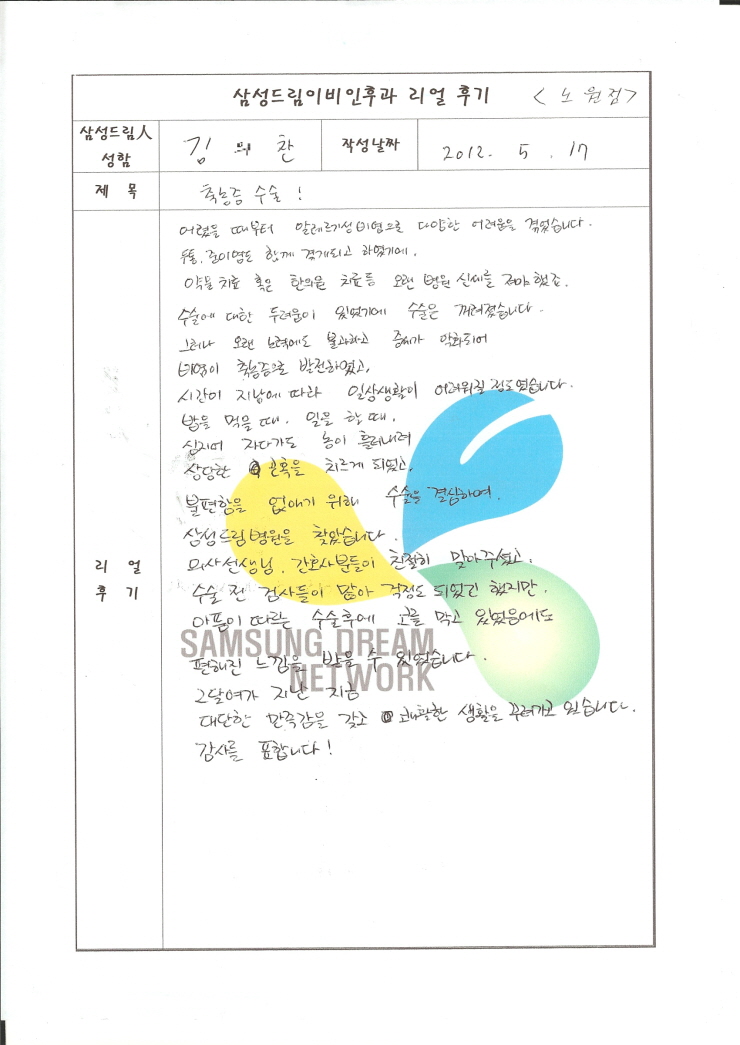 삼성드림이비인후과 리얼 후기 <노원점>
삼성드림人 성함 김의찬 작성날짜 2012. 5. 17
제 목 축농증 수술 !
어렸을 때부터 알레르기성 비염으로 다양한 어려움을 겪었습니다.
두통, 중이염도 함께 겪게되고 하였기에,
약물치료 혹은 한의원 치료등 오랜 병원 신세를 져야 했죠.
수술에 대한 두려움이 있었기에 수술은 꺼려졌습니다.
그러나 오랜 노력에도 불과하고 증세가 악화되어
비염이 축농증으로 발전하였고,
시간이 지남에 따라 일상생활이 어려워질 정도였습니다.
밥을 먹을 때, 일을 할 때,
심지어 자다가도 농이 흘러내려
상당한 곤혹을 치르게 되었고,
불편함을 없애기 위해 수술을 결심하여,
삼성드림병원을 찾았습니다.
의사선생님, 간호사분들이 친절히 맞아주셨고,
수술 전 검사들이 많아 걱정도 되었긴 했지만,
아픔이 따르는 수술후에 코를 막고 있었음에도
편해진 느낌을 받을 수 있었습니다.
2달여가 지난 지금
대단한 만족감을 갖고 쾌활한 생활을 꾸려가고 있습니다.
감사를 표합니다!
리 얼
후 기
SAMSUNG DREAM
NETWORK